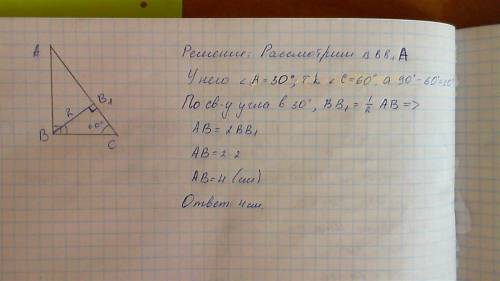 A
B
2
B₁
60°
C
Решение: Рассмотрим Δ BB₁A
У него ∠A=30°, т.к. ∠C=60°, а 90°-60°=30°
По св-у угла в 30°, BB₁ = 1/2 AB =>
AB = 2BB₁
AB = 2·2
AB = 4 (см)
Ответ: 4 см.